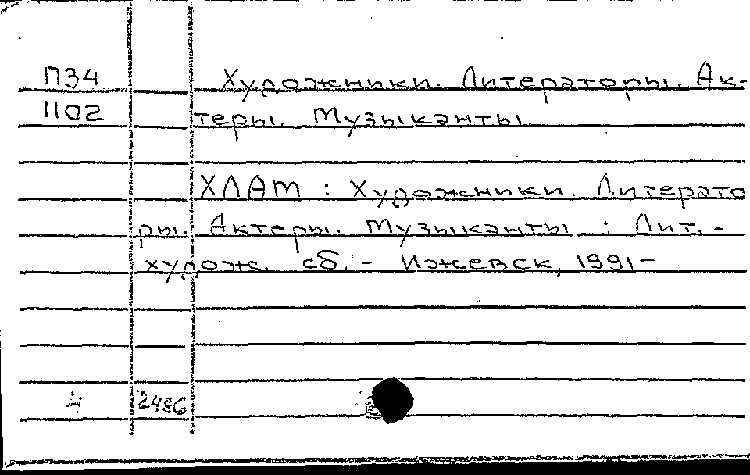 П34 Художники. Литераторы. Ак-
1102 теры. Музыканты
ХЛАМ : Художники. Литерато
ры. Актеры. Музыканты : Лит.-
худож. сб. - Ижевск, 1991-
2486